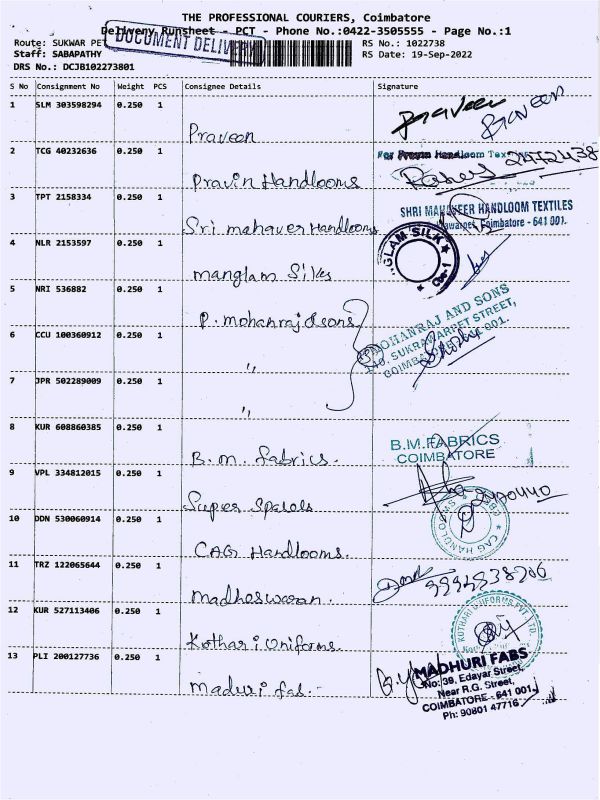 THE PROFESSIONAL COURIERS, Coimbatore
Delivery Runsheet - PCT - Phone No.:0422-3505555 - Page No.:1
DOCUMENT DELIVERY
Route: SUKWAR PET
RS No.: 1022738
Staff: SABAPATHY
RS Date: 19-Sep-2022
DRS No.: DCJB102273801
S No Consignment No Weight PCS Consignee Details Signature
1 SLM 303598294 0.250 1
Praveen
Praveen
2 TCG 40232636 0.250 1
Pravin Handlooms
2472438
3 TPT 2158334 0.250 1
Sri. mahaver Handlooms
SHRI MAHAVEER HANDLOOM TEXTILES
Coimbatore - 641 001.
4 NLR 2153597 0.250 1
manglam Silks
GLAM SILK
Cbe-1
5 NRI 536882 0.250 1
P. mohanraj & sons
MOHANRAJ AND SONS
146, SUKRAWARPET STREET,
6 CCU 100360912 0.250 1
"
7 JPR 502289009 0.250 1
"
8 KUR 608860385 0.250 1
B. m. fabrics.
B.M.FABRICS
COIMBATORE
9 VPL 334812015 0.250 1
Super
10 DDN 530060914 0.250 1
CAG Handlooms.
CAG HANDLOOMS
11 TRZ 122065644 0.250 1
madheswaran.
12 KUR 527113406 0.250 1
Kothari Uniforms.
KOTHARI UNIFORMS PVT. LTD.
13 PLI 200127736 0.250 1
maduri fas.
MADHURI FABS
No: 39, Edayar Street,
Near R.G. Street,
COIMBATORE - 641 001.
Ph: 90801 47716